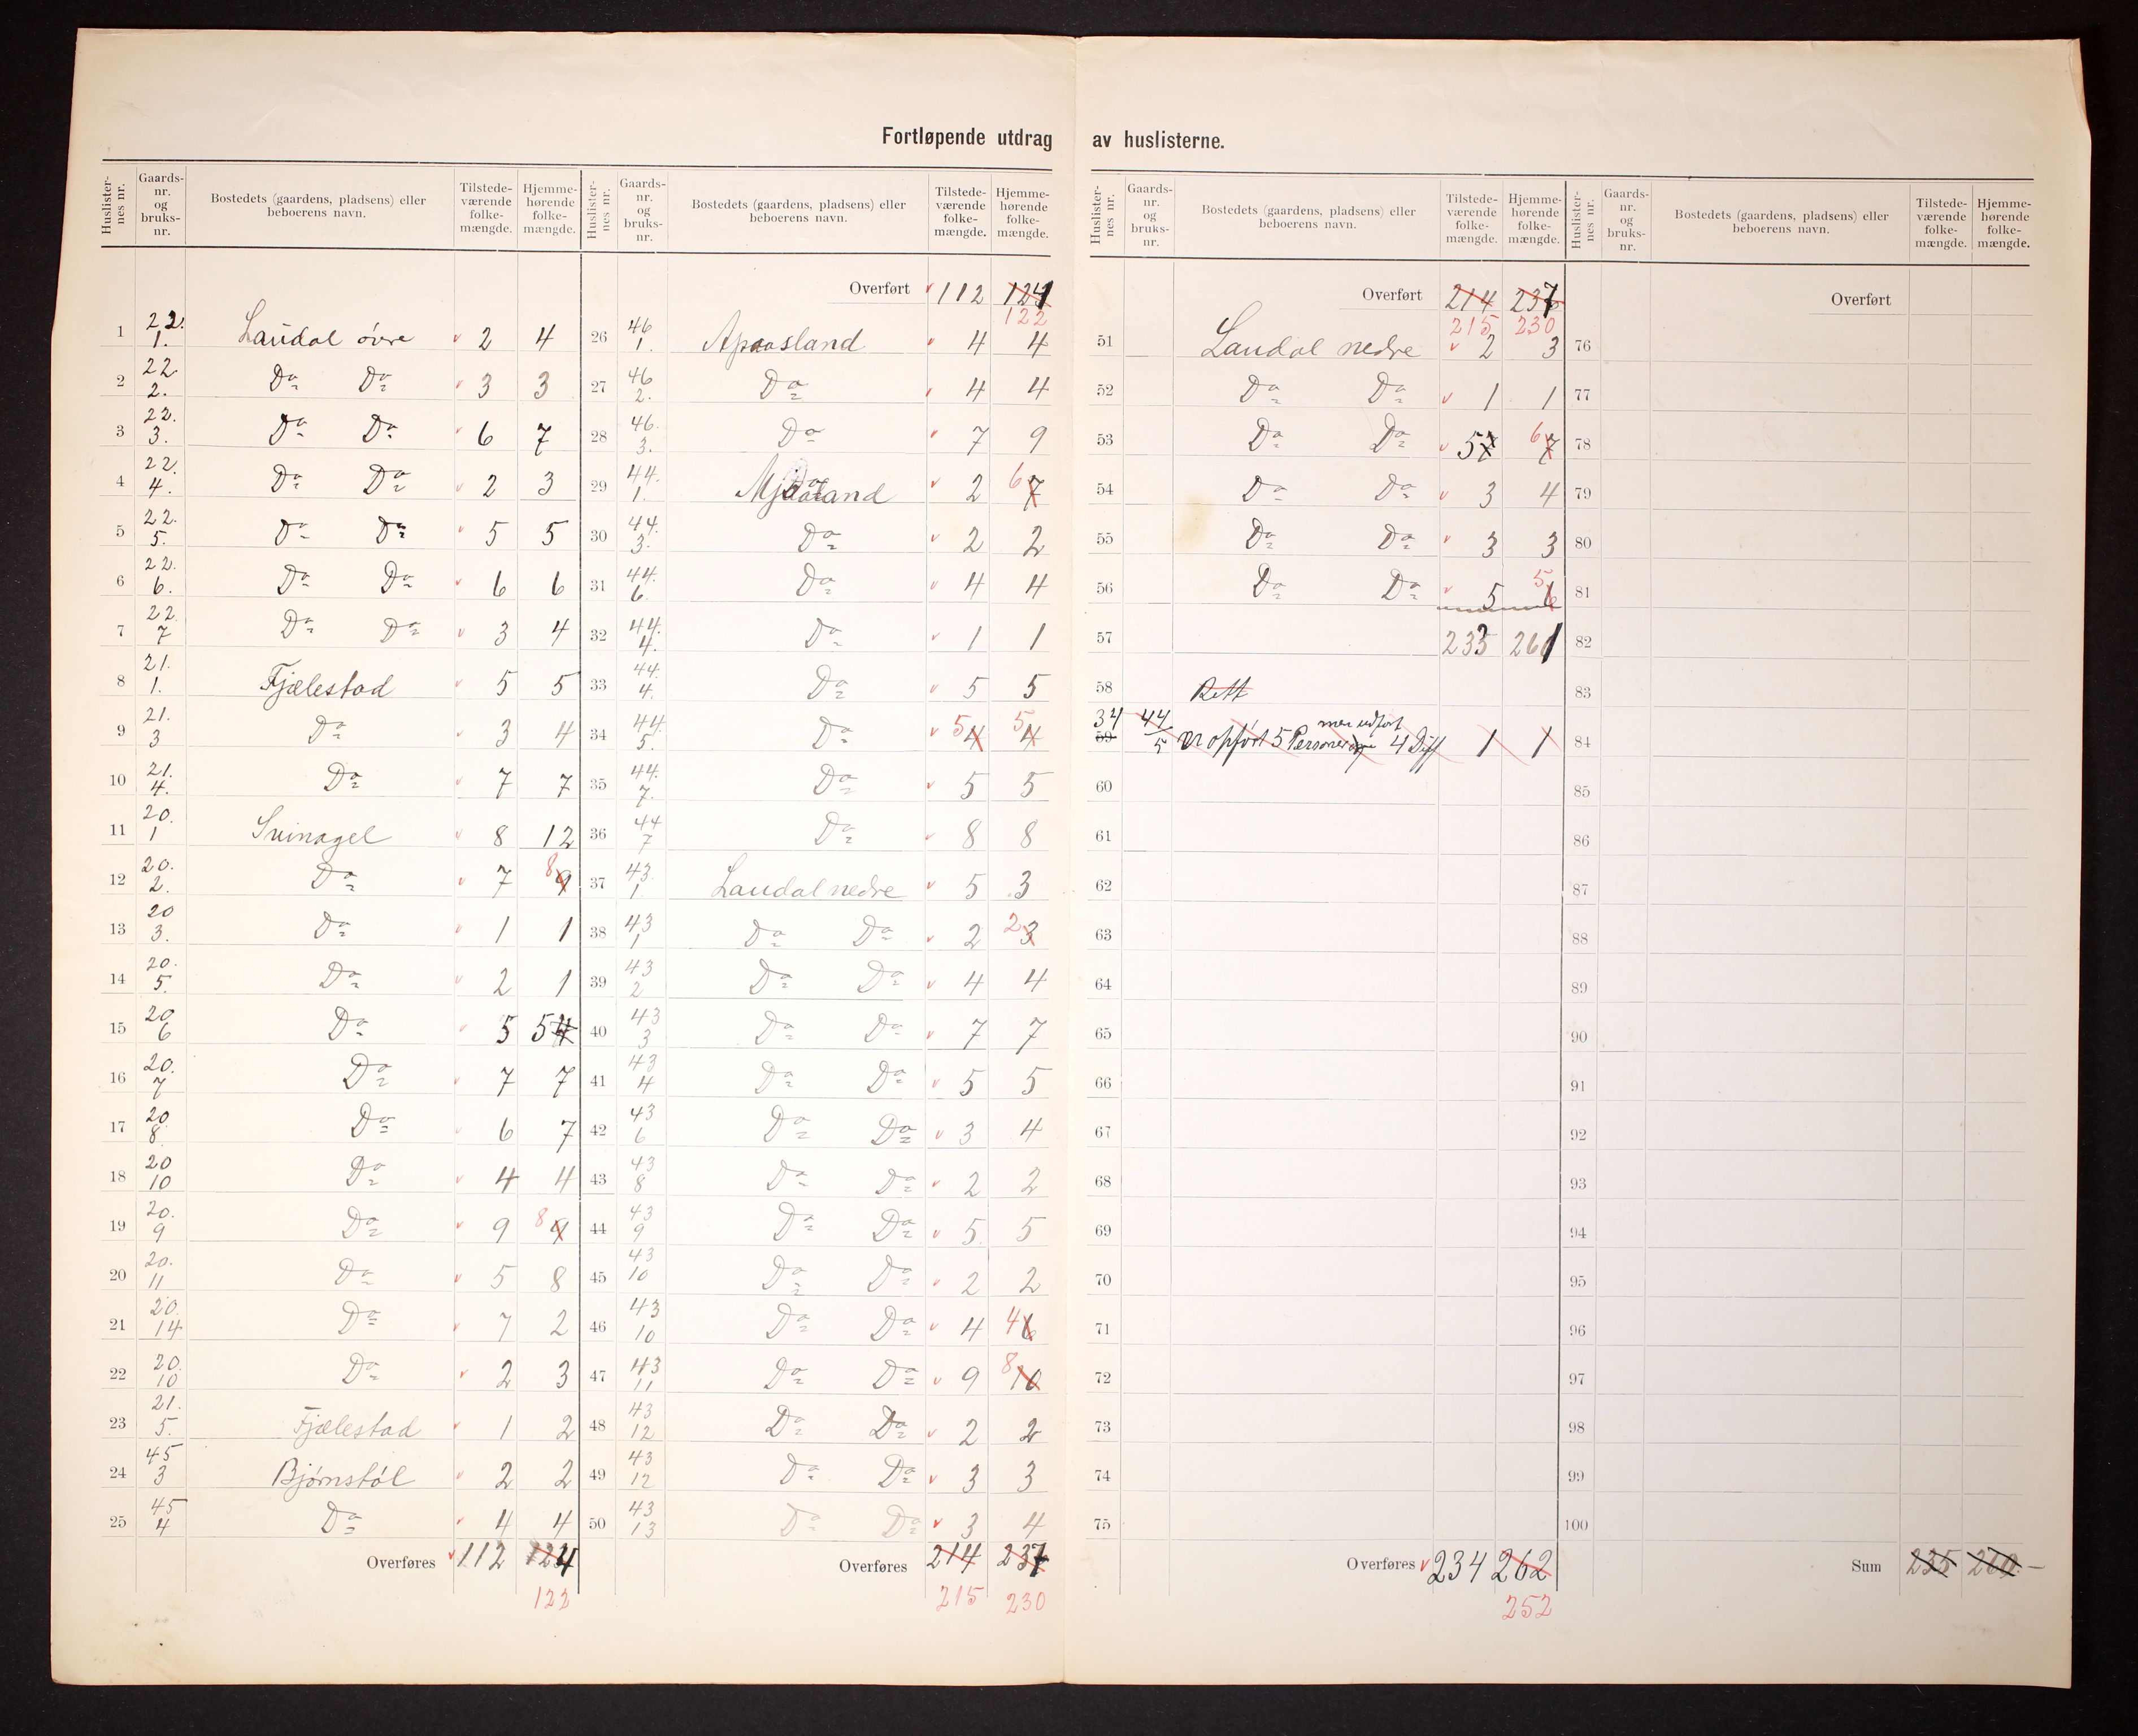 Fortløpende utdrag av huslisterne.
Huslisternes nr. Gaards-nr. og bruks-nr. Bostedets (gaardens, pladsens) eller beboerens navn. Tilstedeværende folkemængde. Hjemmehørende folkemængde.
1 22. 1. Laudal övre 2 4
2 22. 2. Do Do 3 3
3 22. 3. Do Do 6 7
4 22. 4. Do Do 2 3
5 22. 5. Do Do 5 5
6 22. 6. Do Do 6 6
7 22. 7 Do Do 3 4
8 21. 1. Fjælestad 5 5
9 21. 3 Do 3 4
10 21. 4. Do 7 7
11 20. 1 Svinagel 8 12
12 20. 2. Do 7 8 9
13 20 3. Do 1 1
14 20. 5. Do 2 1
15 20 6 Do 5 5 4
16 20. 7 Do 7 7
17 20. 8 Do 6 7
18 20 10 Do 4 4
19 20. 9 Do 9 8 9
20 20. 11 Do 5 8
21 20. 14 Do 7 2
22 20. 10 Do 2 3
23 21. 5. Fjælestad 1 2
24 45 3 Bjørnstøl 2 2
25 45 4 Do 4 4
Overføres 112 124
122
Huslisternes nr. Gaards-nr. og bruks-nr. Bostedets (gaardens, pladsens) eller beboerens navn. Tilstedeværende folkemængde. Hjemmehørende folkemængde.
Overført 112 124
122
26 46 1. Apaasland 4 4
27 46 2. Do 4 4
28 46. 3. Do 7 9
29 44. 1. Mjaaland 2 6 7
30 44. 3. Do 2 2
31 44. 6. Do 4 4
32 44. 4. Do 1 1
33 44. 4. Do 5 5
34 44. 5. Do 5 4 5 4
35 44. 7. Do 5 5
36 44 7 Do 8 8
37 43. 1 Laudal nedre 5 3
38 43 1 Do Do 2 2 3
39 43 2 Do Do 4 4
40 43 3 Do Do 7 7
41 43 4 Do Do 5 5
42 43 6 Do Do 3 4
43 43 8 Do Do 2 2
44 43 9 Do Do 5 5
45 43 10 Do Do 2 2
46 43 10 Do Do 4 4 6
47 43 11 Do Do 9 8 10
48 43 12 Do Do 2 2
49 43 12 Do Do 3 3
50 43 13 Do Do 3 4
Overføres 214 237
215 230
Huslisternes nr. Gaards-nr. og bruks-nr. Bostedets (gaardens, pladsens) eller beboerens navn. Tilstedeværende folkemængde. Hjemmehørende folkemængde.
Overført 214 237
215 230
51 Laudal nedre 2 3
52 Do Do 1 1
53 Do Do 5 7 6 7
54 Do Do 3 4
55 Do Do 3 3
56 Do Do 5 5 6
57 233 261
58 Rett
34 59 44 5 er opført 5 Personer men udført 4 Diff 1 1
60
61
62
63
64
65
66
67
68
69
70
71
72
73
74
75
Overføres 234 262
252
Huslisternes nr. Gaards-nr. og bruks-nr. Bostedets (gaardens, pladsens) eller beboerens navn. Tilstedeværende folkemængde. Hjemmehørende folkemængde.
Overført
76
77
78
79
80
81
82
83
84
85
86
87
88
89
90
91
92
93
94
95
96
97
98
99
100
Sum 235 260